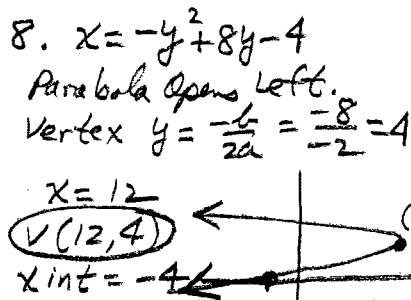 8. x = -y²+8y-4
Parabola Opens Left.
Vertex y = -b/2a = -8/-2 = 4
x = 12
V(12,4)
x int = -4